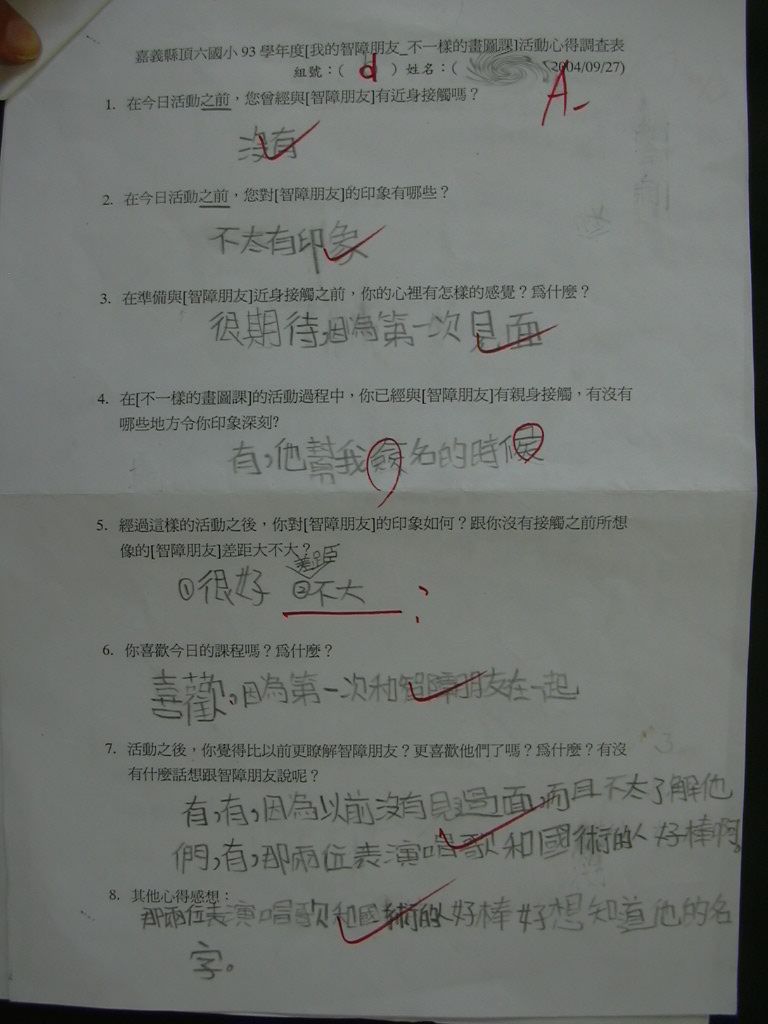 嘉義縣頂六國小 93 學年度[我的智障朋友_不一樣的畫圖課]活動心得調查表
組號：( d ) 姓名：( 2004/09/27)
A-
1. 在今日活動之前，您曾經與[智障朋友]有近身接觸嗎？
沒有
2. 在今日活動之前，您對[智障朋友]的印象有哪些？
不太有印象
3. 在準備與[智障朋友]近身接觸之前，你的心裡有怎樣的感覺？為什麼？
很期待，因為第一次見面
4. 在[不一樣的畫圖課]的活動過程中，你已經與[智障朋友]有親身接觸，有沒有
哪些地方令你印象深刻?
有，他幫我簽名的時候
5. 經過這樣的活動之後，你對[智障朋友]的印象如何？跟你沒有接觸之前所想
像的[智障朋友]差距大不大？
差距
①很好 ②不大 ?
6. 你喜歡今日的課程嗎？為什麼？
喜歡，因為第一次和智障朋友在一起
7. 活動之後，你覺得比以前更瞭解智障朋友？更喜歡他們了嗎？為什麼？有沒
有什麼話想跟智障朋友說呢？
有，有，因為以前沒有見過面，而且不太了解他
們，有，那兩位表演唱歌和國術的人好棒啊。
8. 其他心得感想：
那兩位表演唱歌和國術的人好棒好想知道他的名
字。